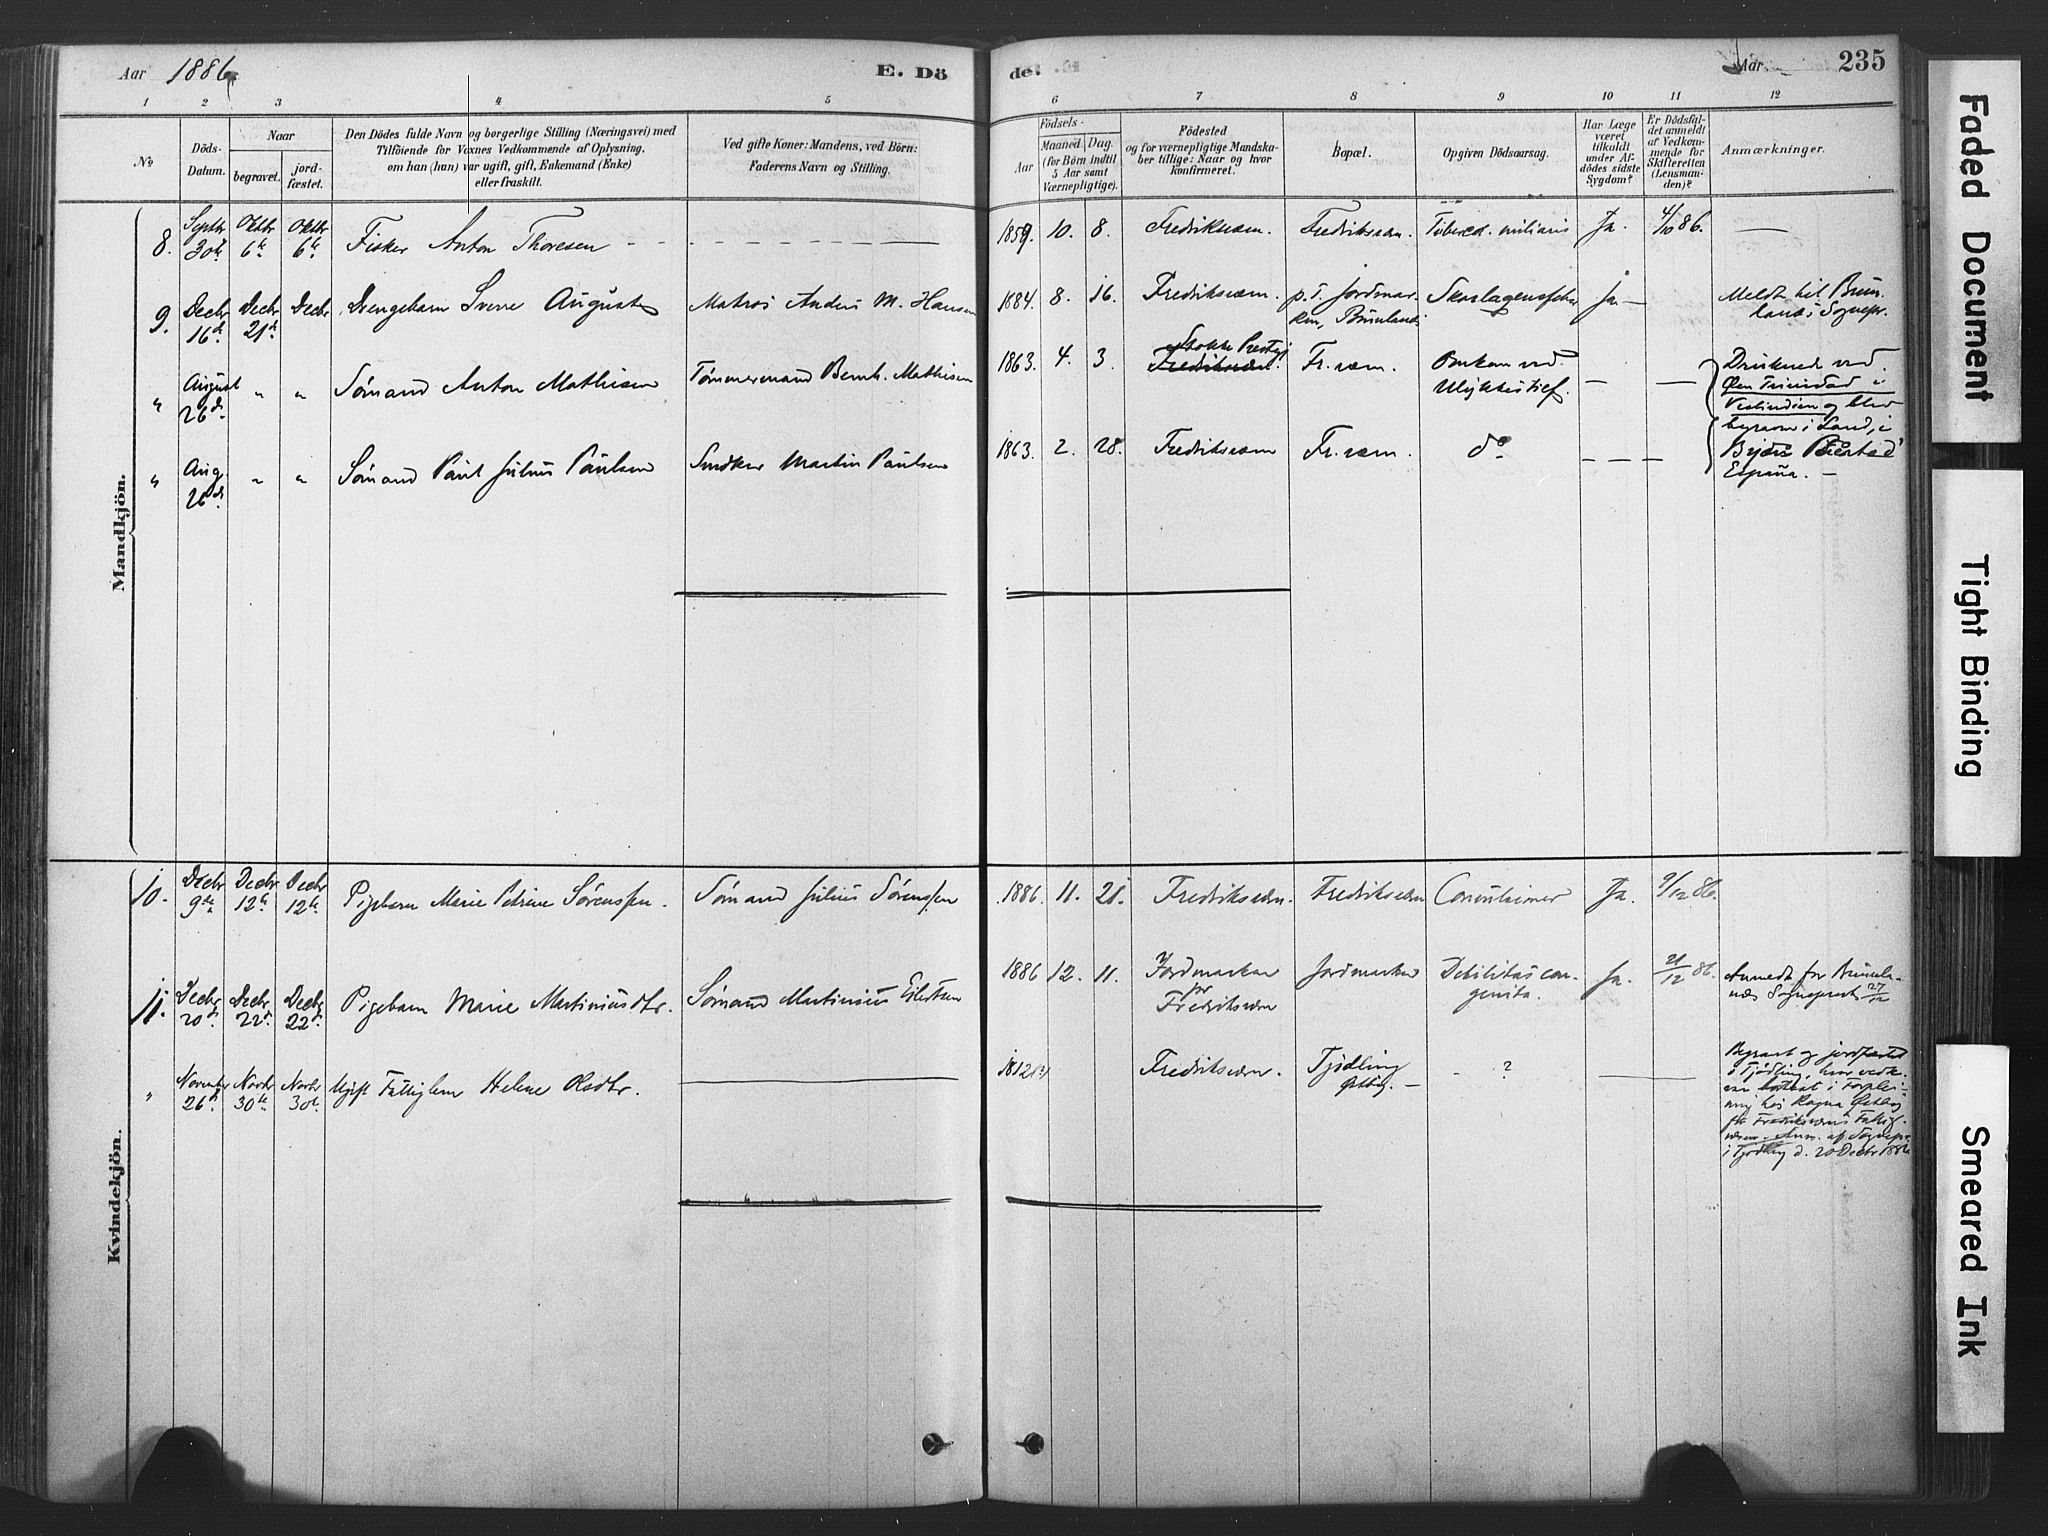 Aar 1886. E. Dö
de. Aar 235
1 2 3 4 5 6 7 8 9 10 11 12
No
Döds-Datum.
Naar
begravet.
jord-fæstet.
Den Dödes fulde Navn og borgerlige Stilling (Næringsvei) med
Tilföiende for Voxnes Vedkommende af Oplysning,
om han (hun) var ugift, gift, Enkemand (Enke)
eller fraskilt.
Ved gifte Koner: Mandens, ved Börn:
Faderens Navn og Stilling.
Födsels-
Aar
Maaned. Dag.
(for Börn indtil
5 Aar samt
Værnepligtige).
Födested
og for værnepligtige Mandska-
ber tillige: Naar og hvor
konfirmeret.
Bopæl.
Opgiven Dödsaarsag.
Har Læge
været
tilkaldt
under Af-
dödes sidste
Sygdom?
Er Dödsfal-
det anmeldt
af Vedkom-
mende for
Skifteretten
(Lensman-
den)?
Anmærkninger.
Mandkjön.
8. Septbr 30te Oktbr 6te Oktbr 6te Fisker Anton Thoresen 1859. 10. 8. Fredriksværn. Fredriksværn. Tubercul. miliaris Ja. 4/10 86. —
9. Decbr 16de Decbr 21de Decbr Drengebarn Sverre August Matros Anders M. Hansen 1884. 8. 16. Fredriksværn. p. T. Jordmar-
ken, Brunlanæs Skarlagensfeber Ja — Meldt til Brun-
lanæs Sognepr.
" August 26de " " Sømand Anton Mathisen Tømmermand Bernh. Mathisen 1863. 4. 3. Stokke Prestgj
Fredriksværn. Fr.værn. Omkom ved
Ulykkestilf. — — Druknede ved
Øen Trinidad i
Vestindien og blev
begravne i Land, i
" Aug. 26de " " Sømand Paul Julius Paulsen Snedker Martin Paulsen 1863. 2. 28. Fredriksværn Fr.værn. do — Byen
España. —
Kvindekjön.
10. Decbr 9de Decbr 12te Decbr 12te Pigebarn Marie Petrine Sørenssen. Sømand Julius Sørenssen 1886. 11. 21. Fredriksværn. Fredriksværn Convulsioner Ja. 9/12 86.
11. Decbr 20de Decbr 22de Decbr 22de Pigebarn Marie Martiniusdtr. Sømand Martinius Eilertsen 1886 12. 11. Jordmarken
pr
Fredriksværn Jordmarken Debilitas con-
genita. Ja. 21/12 86. Anmeldt for Brunla-
næs Sogneprest 27/12
" November 26de Novbr 30te Novbr 30te Ugift Fattiglem Helene Olsdtr. — 1812 Fredriksværn. Tjødling
Østby. — ? — Begravet og jordfæstet
i Tjødling, hvor vedk.
var bortsat i Forplei-
ning hos Ragna Østby
fra Fredriksværns Fattig-
væsen. Anm. af Sognepr.
i Tjødling d. 20 Decbr 1886
Faded Document
Tight Binding
Smeared Ink